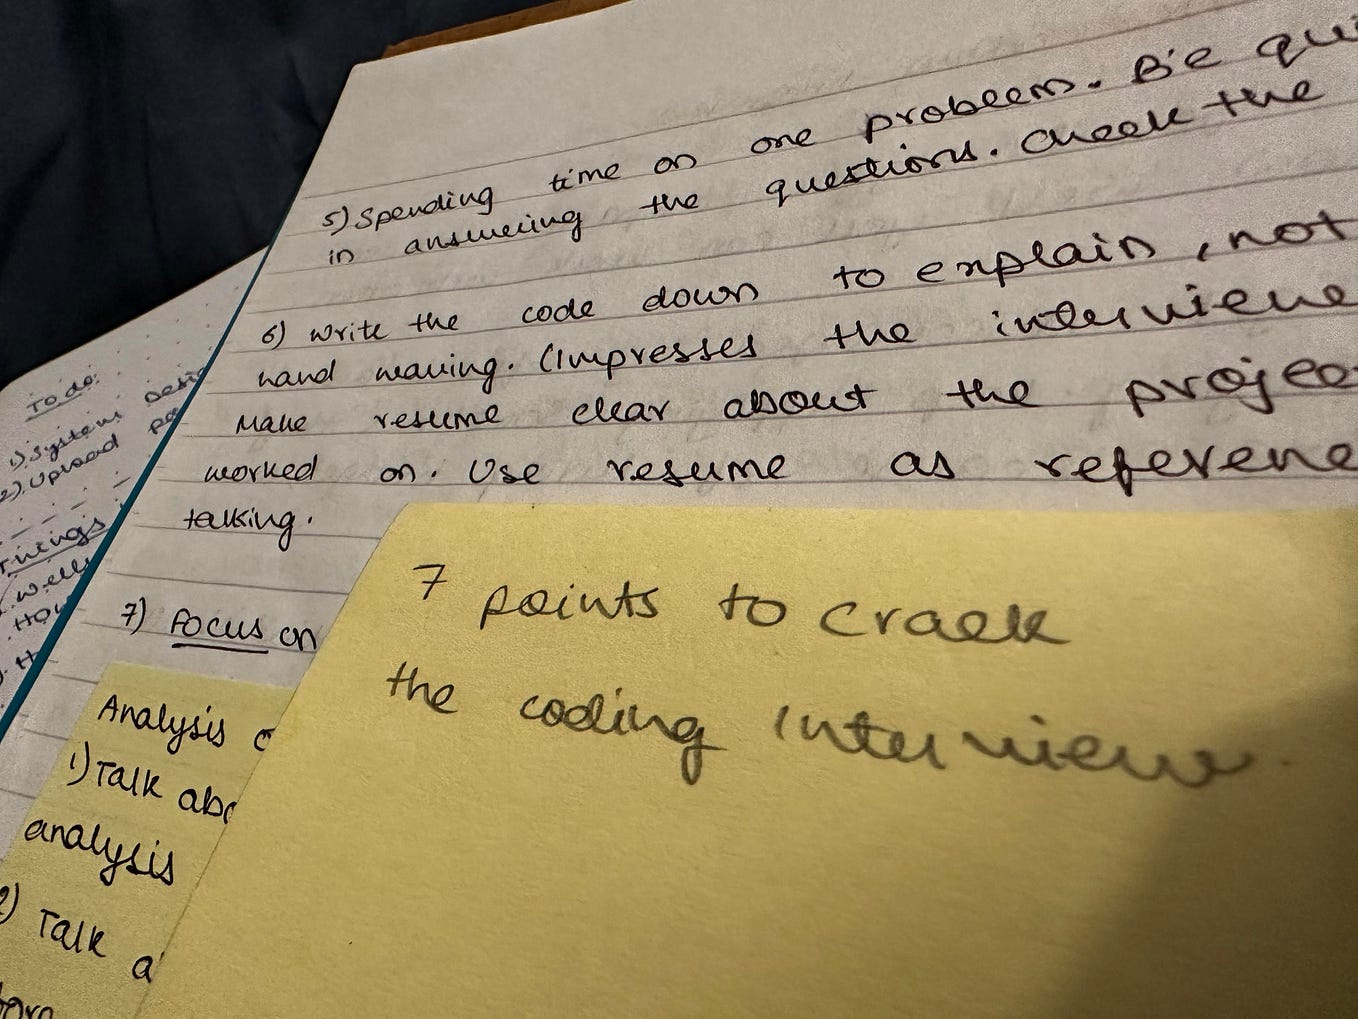 5) Spending time on one problem. Be qui
in answering the questions. Check the
6) Write the code down to explain, not
hand waving. (Impresses the interviewe
Make resume clear about the projec
worked on. Use resume as referenc
talking.
7) Focus on
7 points to crack
the coding Interview.
Analysis o
1) Talk abo
analysis
2) Talk a
To do:
1) System Desig
2) Upload
Things